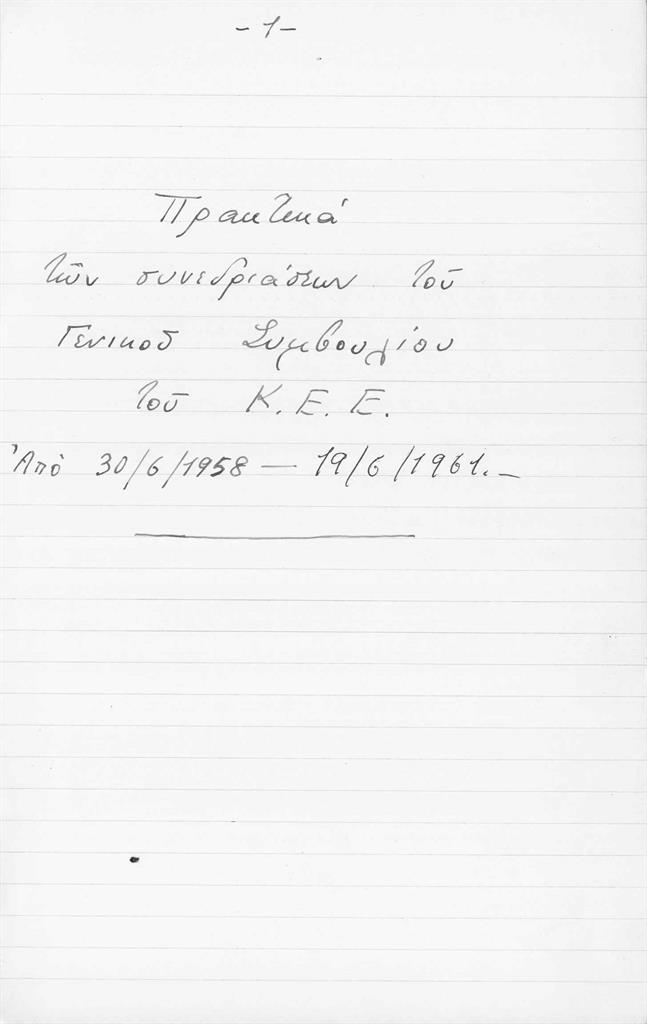 - 1 -
Πρακτικά
τῶν συνεδριάσεων τοῦ
Γενικοῦ Συμβουλίου
τοῦ Κ. Ε. Ε.
Ἀπό 30/6/1958 — 19/6/1961. -